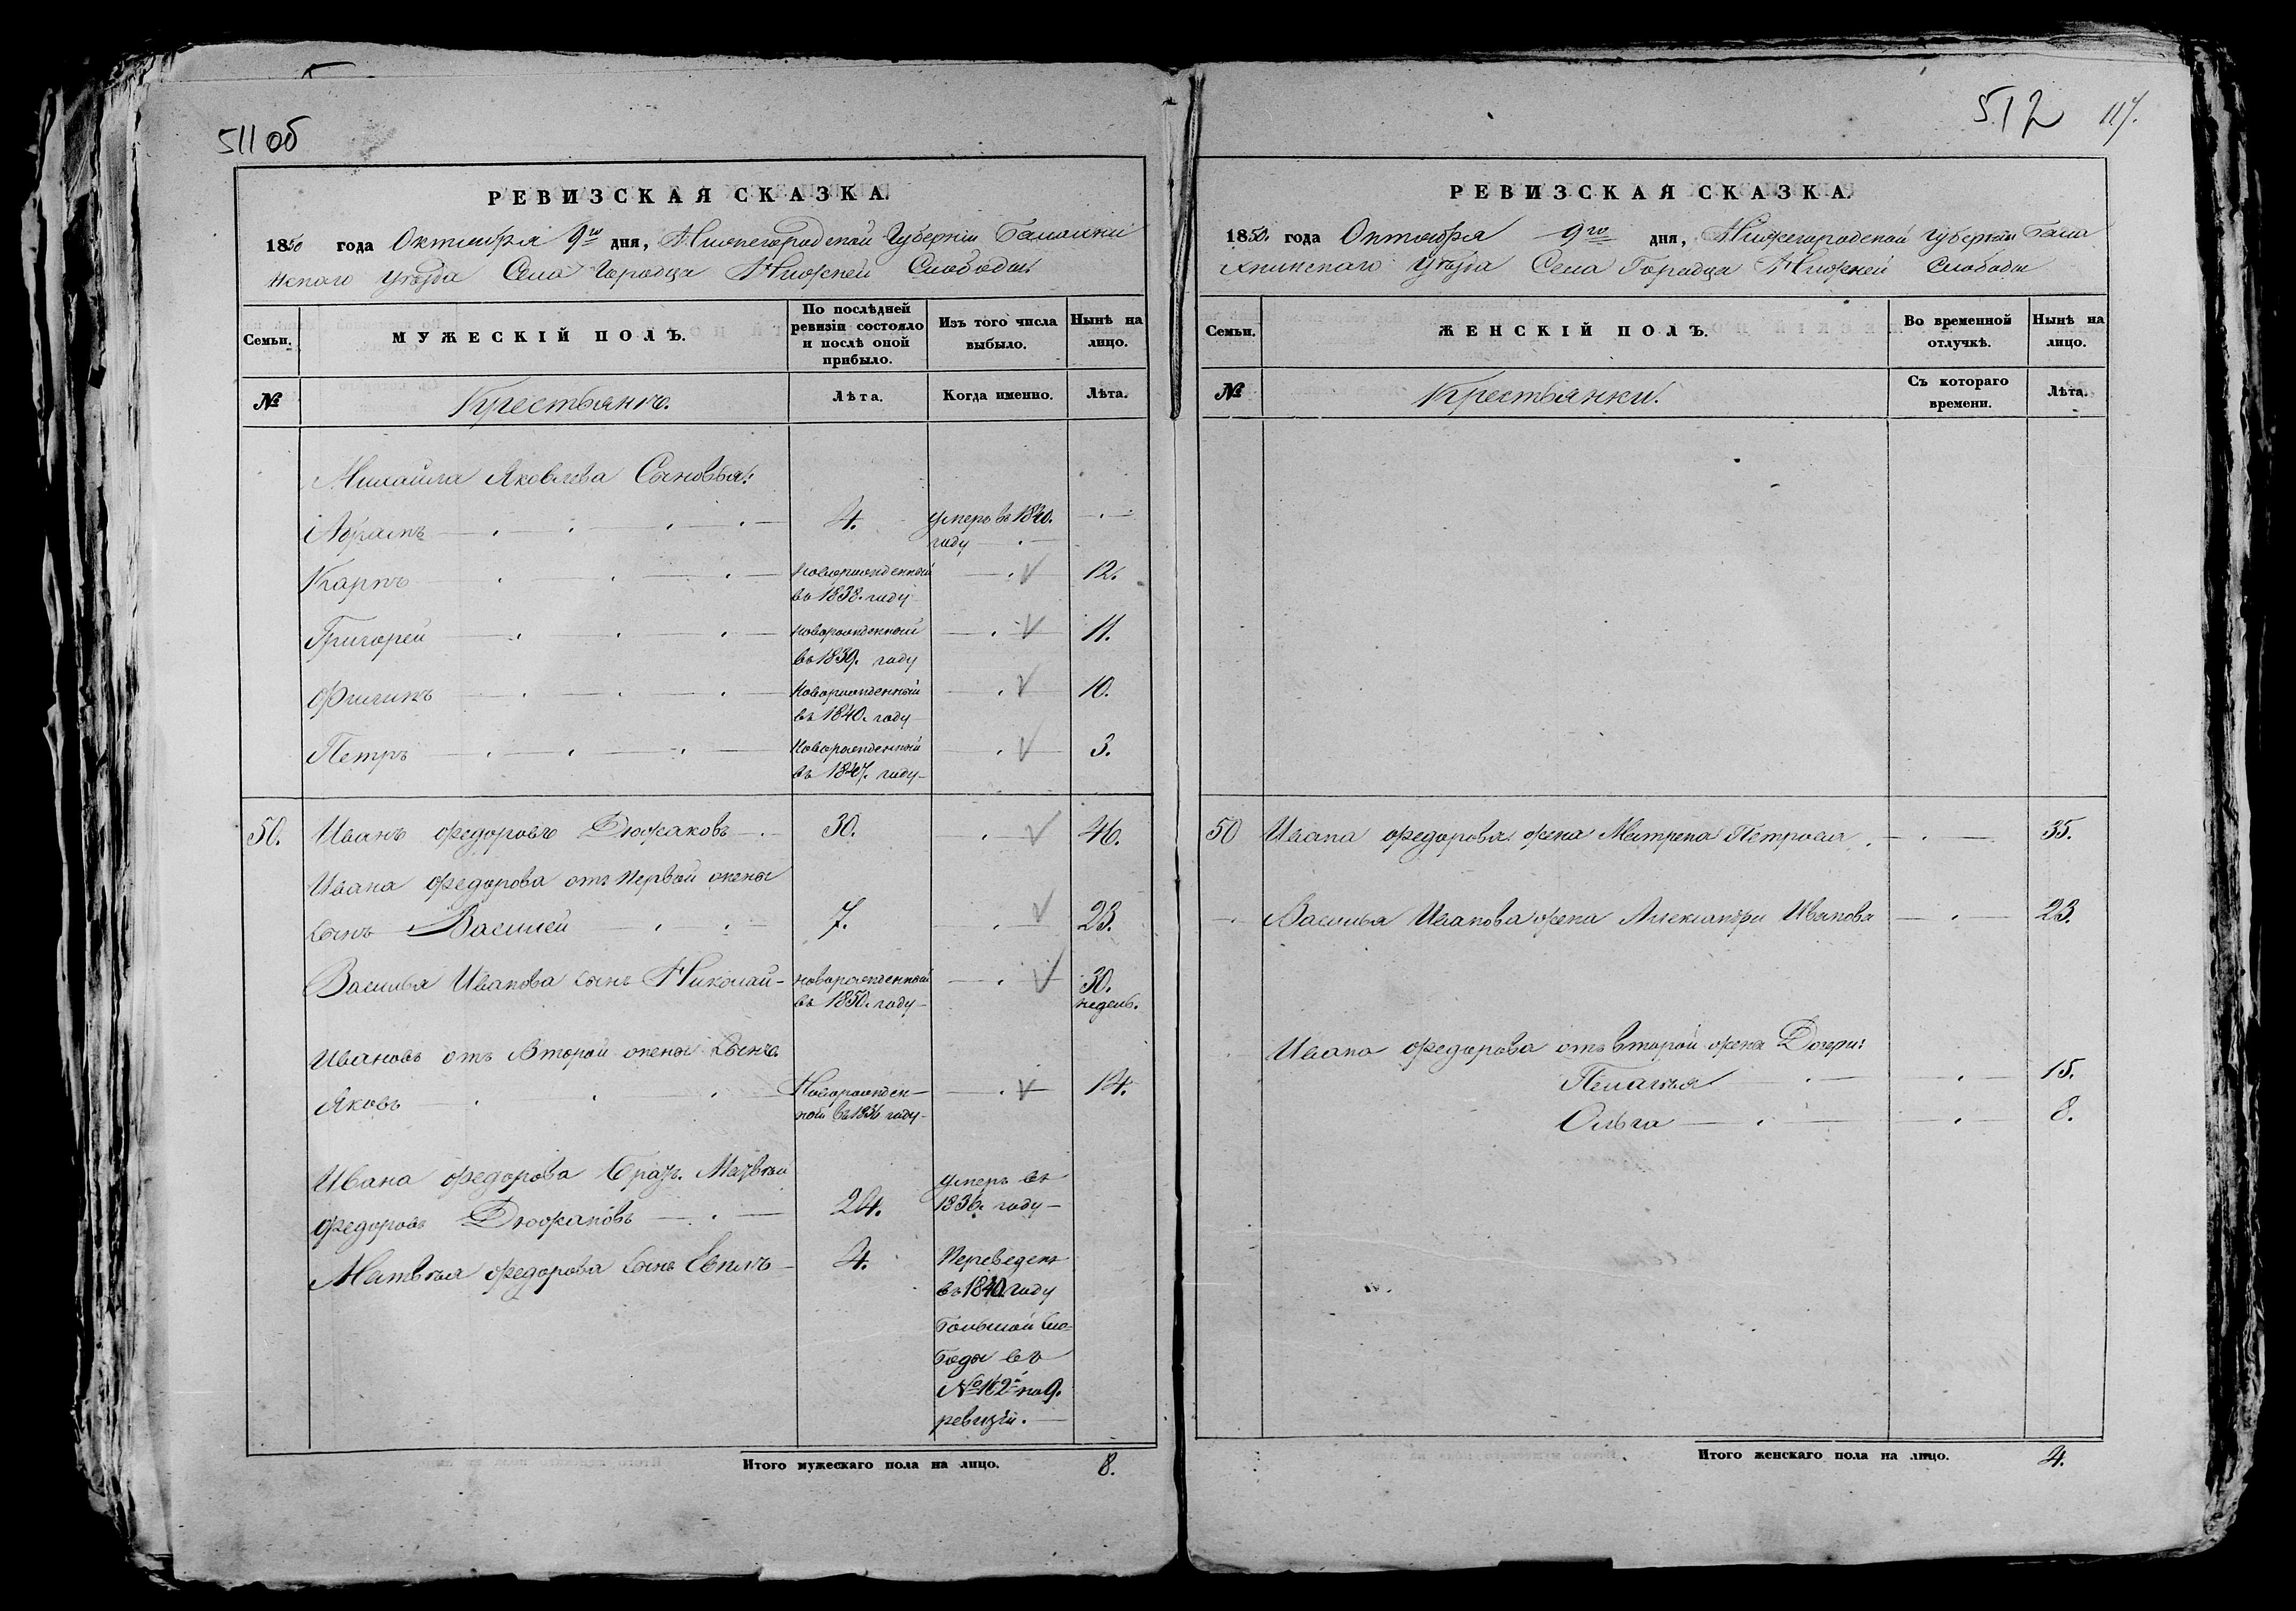 511 об
РЕВИЗСКАЯ СКАЗКА.
1850 года Октября 9го дня, Нижегородской Губернии Балахни
нскаго Уѣзда Села Городца Нижней Слободы
Семьи.
МУЖЕСКІЙ ПОЛЪ.
По послѣдней ревизіи состояло и послѣ оной прибыло.
Изъ того числа выбыло.
Нынѣ на лицо.
№
Крестьянъ.
Лѣта.
Когда именно.
Лѣта.
Михайла Яковлева Сыновья:
Абрамъ 4. умеръ въ 1840.
году
Карпъ новорожденный 12.
въ 1838. году
Григорей новорожденный 11.
въ 1839. году
Филипъ новорожденный 10.
въ 1840. году
Петръ новорожденный 3.
въ 1847. году
50. Иванъ Федоровъ Дюжаковъ 30. 46.
Ивана Федорова отъ первой жены
сынъ Василей 7. 23.
Василья Иванова сынъ Николай новорожденный 30.
въ 1850. году недель.
Ивановъ отъ второй жены сынъ
Яковъ Новорожден- 14.
ной въ 1836 году
Ивана Федорова братъ Матвѣй умеръ въ
Федоровъ Дюжаковъ 24. 1836. году
Матвѣя Федорова сынъ 4. Переведенъ
въ 1840. году
Большой Сло-
боды въ
№ 162й по 9.
ревизіи.
Итого мужескаго пола на лицо. 8.
512 117.
РЕВИЗСКАЯ СКАЗКА.
1850. года Октября 9го дня, Нижегородской Губернии Бала
хнинскаго Уѣзда Села Городца Нижней Слободы
Семьи.
ЖЕНСКІЙ ПОЛЪ.
Во временной отлучкѣ.
Нынѣ на лицо.
№
Крестьянки.
Съ котораго времени.
Лѣта.
50 Ивана Федорова жена Матрена Петрова 35.
Василья Иванова жена Александра Иванова 23.
Ивана Федорова отъ второй жены Дочери:
Пелагья 15.
Ольга 8.
Итого женскаго пола на лицо. 4.